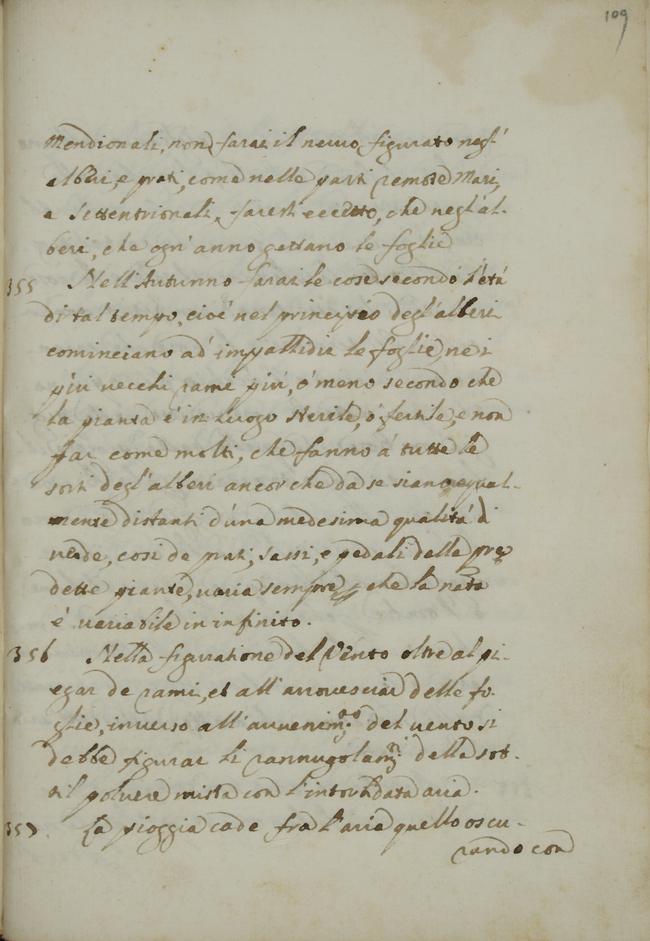 109
Meridionali, non farai il nevvo figurato negl'
alberi, e prati, come nelle parti remote Mari,
e Settentrionali, faresti eccetto, che negl'al-
beri, che ogn'anno gettano le foglie
355 Nell'Autunno farai le cose secondo l'età
di tal tempo, cioè nel principio degl'alberi
cominciano ad' impallidir le foglie, ne i
più vecchi rami più, ò meno secondo che
la pianta è in luogo sterile, ò fertile, e non
far come molti, che fanno à tutte le
sorti degl'alberi ancor che da se siano equal-
mente distanti d'una medesima qualità di
verde, così de prati, sassi, e pedali delle pre
dette piante, varia sempre che la nata
è variabile in infinito.
356 Nella figuratione del Vento oltre al pi-
egar de rami, et all'arrovesciar delle fo-
glie, inverso all'avvenim.to del vento si
debbe figurar li rannugolam.ti della sot-
til polvere mista con l'intorbidata aria.
357 La pioggia cade fra l'aria quello oscu-
rando con